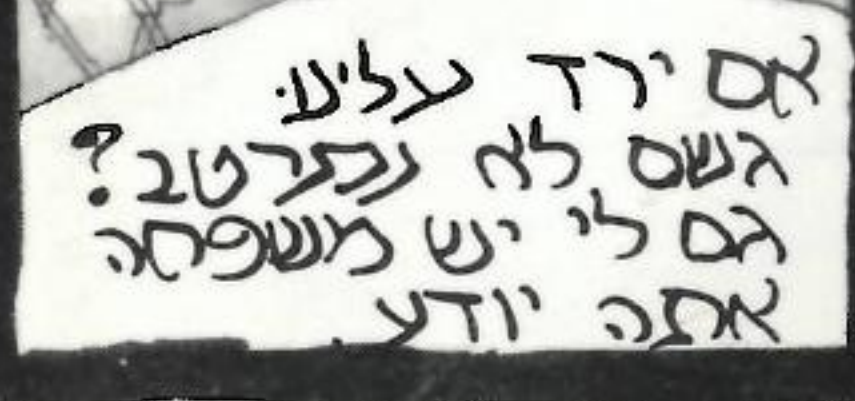 אם ירד עלינו
גשם לא נתרטב?
גם לי יש משפחה
אתה יודע.